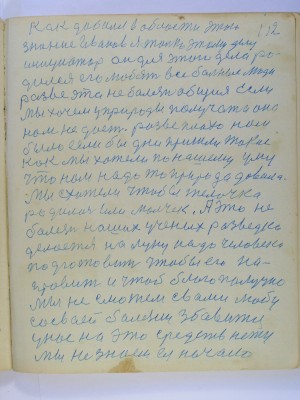 112
как добился в области этого
знание Иванов я только этому делу
инициатор он для этого дела ро-
дился его любят все больные люди
разве это не болезнь общия если
мы хочем у природы получать а она
нам не дает. разве плохо нам
было если бы дни пришли такие
как мы хотели по нашему уму
что нам надо то природа давала.
мы схотели чтобы телочка
родилась или мальчик. А это не
болезн наших ученых разведка
делается на луну надо человека
подготовить чтобы его на-
править и чтоб благополучно
мы не сможем с вами любу
со своей болезни збавити
у нас на это средств нету
мы не знаем ея начало